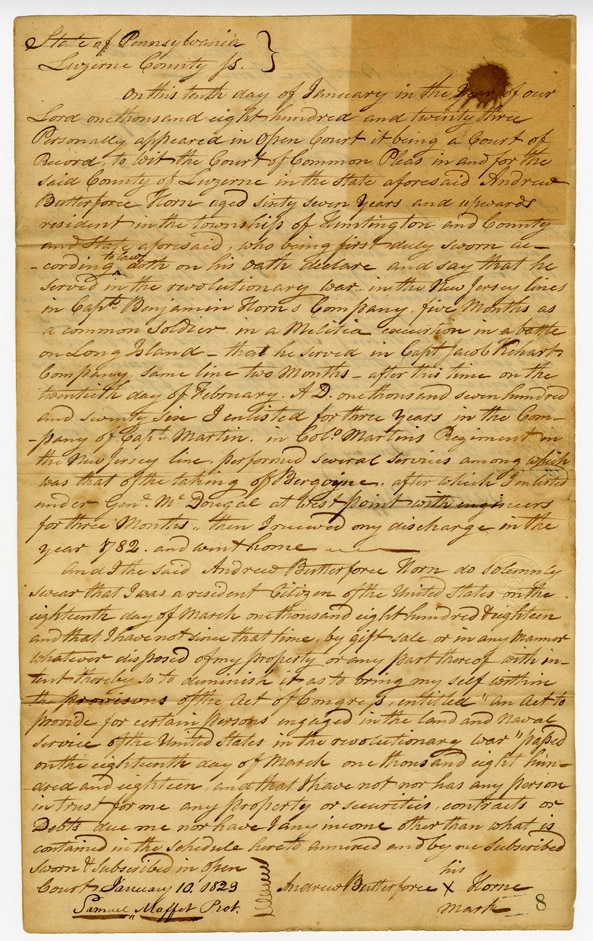 State of Pennsylvania }
Luzerne County ss.
On this tenth day of January in the Year of our
Lord one thousand eight hundred and twenty three
Personally appeared in Open Court it being a Court of
Record to wit the Court of Common Pleas in and for the
said County of Luzerne in the State aforesaid Andrew
Butterforce Horn aged sixty seven years and upwards
resident in the township of Huntington and County
and State aforesaid, who being first duly sworn ac-
-cording to law doth on his oath declare and say that he
served in the revolutionary war in the New Jersey lines
in Capt. Benjamin Horn's Company. five Months as
a common Soldier. in a Melitia excurtion in a battle
on Long Island - that he served in Capt Jacob
Company same line two Months - after this time on the
twentieth day of February. A.D. one thousand seven hundred
and seventy five I enlisted for three years in the Com-
-pany of Capt. Martin. in Colo. Martins Regiment in
the New Jersey line, performed several services among which
was that of the taking of Bergoyne. after which I enlisted
under Genl. Mc Dougal at West point with engineers
for three Months,, then I received my discharge in the
year 1782. and went home
And I the said Andrew Butterforce Horn do solemnly
swear that I was a resident Citizen of the United States on the
eighteenth day of March one thousand eight hundred & eighteen
and that I have not since that time, by Gift sale or in any Manner
whatever disposed of my property or any part thereof with in-
tent thereby so to diminish it as to bring my self within
the provisions of the Act of Congress, entitled "an Act to
provide for certain Persons engaged in the land and Naval
Service of the United States in the revolutionary war" passed
on the eighteenth day of March one thousand eight hun-
dred and eighteen, and that I have not nor has any person
in trust for me any property or securities, contracts or
Debts due me nor have I any income other than what is
contained in the Schedule hereto annexed and by me Subscribed
Sworn & Subscribed in open
Court January 10. 1823
Samuel Maffet Prot.
his
Andrew Butterforce X Horne
mark
8